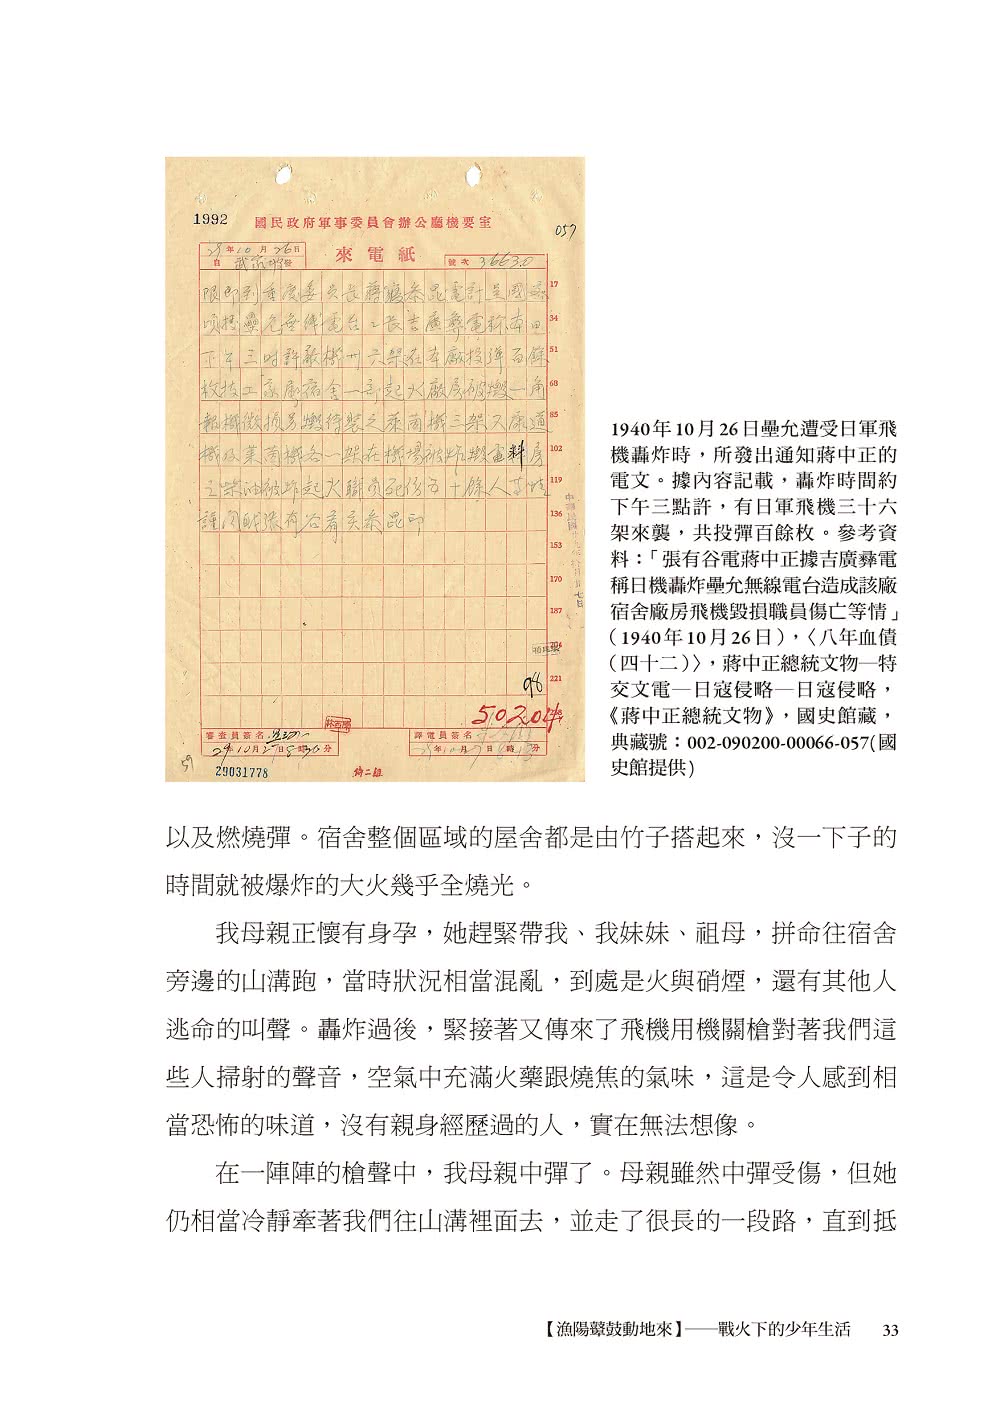 1992
國民政府軍事委員會辦公廳機要室
057
29年10月26日
自 發
來電紙
號次 36630
限即到重慶委員長蔣
電台工長吉廣彝電稱本日
下午三時許敵機卅六架在本廠投彈百餘
枚技工家屬宿舍一部起火廠房被燬一角
機三架又康道
機及萊茵機各一架在機場被炸燬電料房
之柴油被炸起火職員死伤五十餘人等情
謹聞職張有谷
17
34
51
68
85
102
119
136
153
170
187
204
221
98
50204
審查員簽名
譯電員簽名
29031778
1940年10月26日壘允遭受日軍飛
機轟炸時，所發出通知蔣中正的
電文。據內容記載，轟炸時間約
下午三點許，有日軍飛機三十六
架來襲，共投彈百餘枚。參考資
料：「張有谷電蔣中正據吉廣彝電
稱日機轟炸壘允無線電台造成該廠
宿舍廠房飛機毀損職員傷亡等情」
（1940年10月26日），〈八年血債
（四十二）〉，蔣中正總統文物─特
交文電─日寇侵略─日寇侵略，
《蔣中正總統文物》，國史館藏，
典藏號：002-090200-00066-057(國
史館提供)
以及燃燒彈。宿舍整個區域的屋舍都是由竹子搭起來，沒一下子的
時間就被爆炸的大火幾乎全燒光。
我母親正懷有身孕，她趕緊帶我、我妹妹、祖母，拼命往宿舍
旁邊的山溝跑，當時狀況相當混亂，到處是火與硝煙，還有其他人
逃命的叫聲。轟炸過後，緊接著又傳來了飛機用機關槍對著我們這
些人掃射的聲音，空氣中充滿火藥跟燒焦的氣味，這是令人感到相
當恐怖的味道，沒有親身經歷過的人，實在無法想像。
在一陣陣的槍聲中，我母親中彈了。母親雖然中彈受傷，但她
仍相當冷靜牽著我們往山溝裡面去，並走了很長的一段路，直到抵
【漁陽鼙鼓動地來】──戰火下的少年生活 33